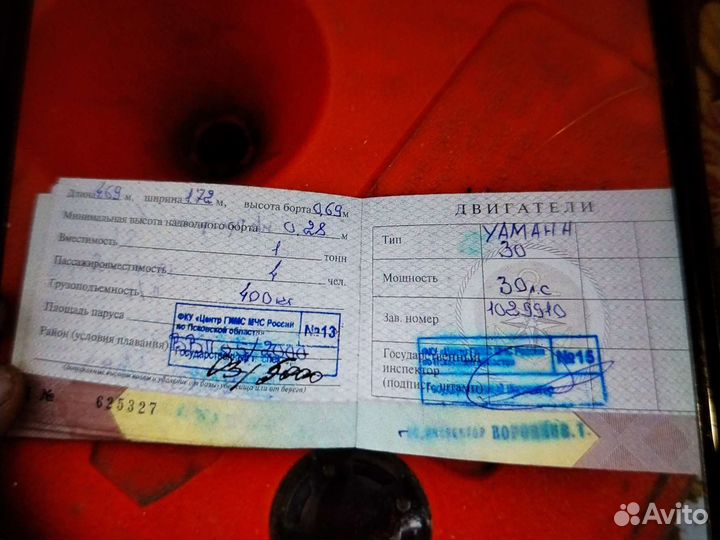 Длина 469 м, ширина 172 м, высота борта 0,69 м
Минимальная высота надводного борта 0.28 м
Вместимость 1 тонн
Пассажировместимость 4 чел.
Грузоподъемность 400 кг
Площадь паруса
ФКУ «Центр ГИМС МЧС России
по Псковской области»
№13
Район (условия плавания)
Государственный
№ 625327
ДВИГАТЕЛИ
Тип YAMAHA
30
Мощность 30 лс
Зав. номер 1029910
ФКУ «Центр ГИМС МЧС России
№15
Государственный
инспектор
(подпись, штамп)
Avito